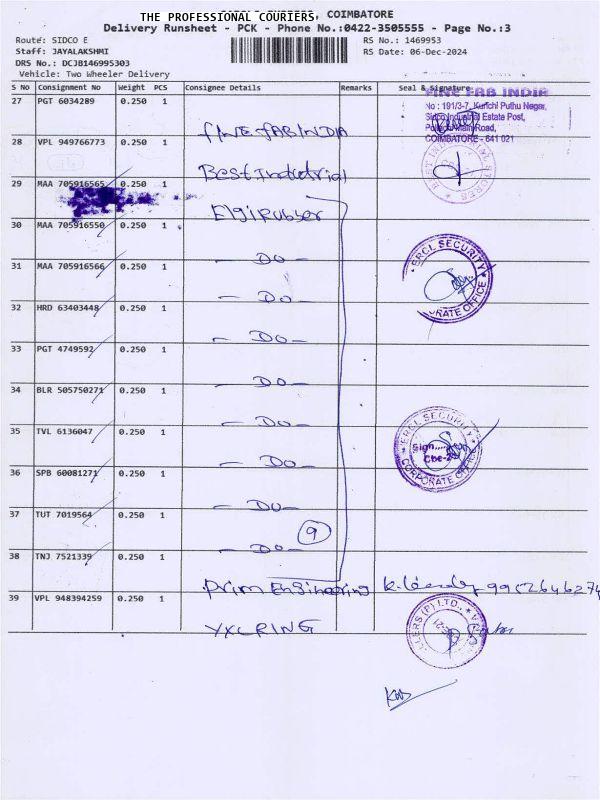 THE PROFESSIONAL COURIERS, COIMBATORE
Delivery Runsheet - PCK - Phone No.:0422-3505555 - Page No.:3
Route: SIDCO E
RS No.: 1469953
Staff: JAYALAKSHMI
RS Date: 06-Dec-2024
DRS No.: DCJB146995303
Vehicle: Two Wheeler Delivery
S No Consignment No Weight PCS Consignee Details Remarks Seal & Signature
27 PGT 6034289 0.250 1
FINE FAB INDIA
No : 191/3-7, Kurichi Puthu Nagar,
Sidco Industrial Estate Post,
Pollachi Main Road,
COIMBATORE - 641 021
FINE FAB INDIA
28 VPL 949766773 0.250 1
Best Industrial
29 MAA 705916565 0.250 1
Elgi Rubber
30 MAA 705916550 0.250 1
- Do -
ERCL SECURITY
CORPORATE OFFICE
31 MAA 705916566 0.250 1
- Do -
32 HRD 63403448 0.250 1
- Do -
33 PGT 4749592 0.250 1
- Do -
34 BLR 505750271 0.250 1
- Do -
35 TVL 6136047 0.250 1
- Do -
ERCL SECURITY
Sign
Cbe-21
CORPORATE OFFICE
36 SPB 60081271 0.250 1
- Do -
37 TUT 7019564 0.250 1
9
- Do -
38 TNJ 7521339 0.250 1
Prim Engineering
39 VPL 948394259 0.250 1
LLERS (P) LTD.
YXLRING